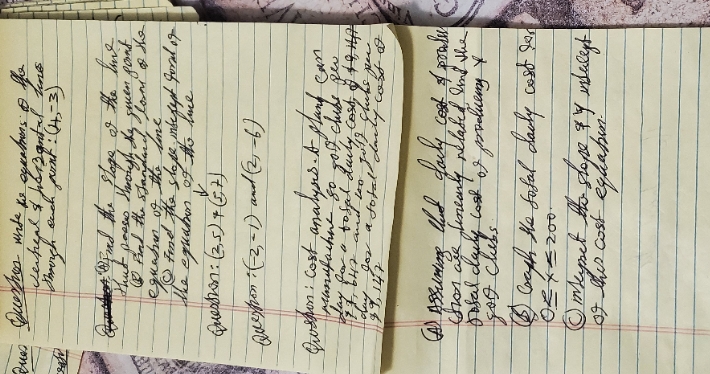 Question: write the equations of the
vertical & horizontal lines
through each point: (4,-3)
(A) Find the slope of the line
that passes through the given points
(B) Find the standard form of the
equation of the line
(C) Find the slope intercept form of
the equation of the line
Question: (2,5) & (5,7)
Question: (-2,-1) and (2,-6)
Question: Cost analysis. A plant can
manufacture 80 golf clubs per
day for a total daily cost of
$7,647 and 100 golf clubs per
day for a total daily cost of
$9,147
(A) Assuming that daily cost & production
are linearly related find the
total daily cost of producing x
golf clubs
(B) Graph the total daily cost for
0≤x≤200.
(C) interpret the slope & y intercept
of this cost equation
Ques